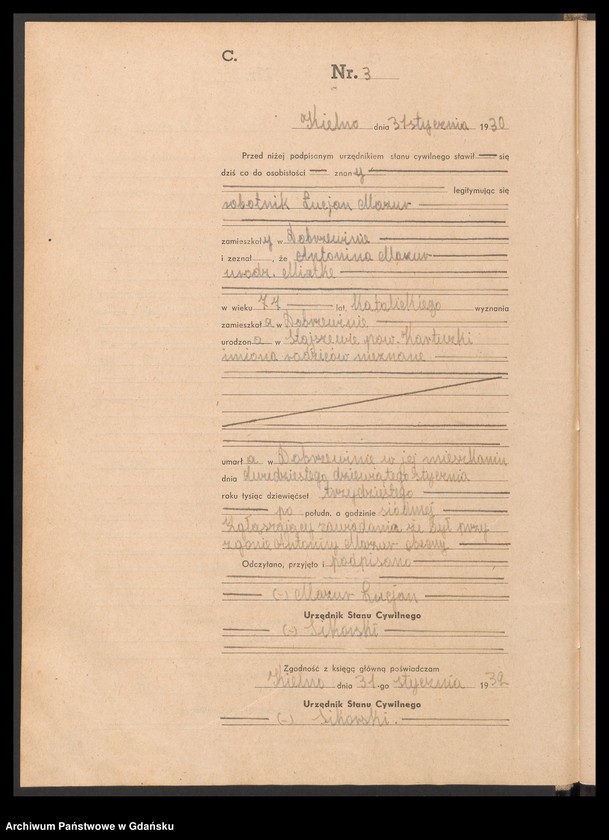 C.
Nr. 3
Kielno dnia 31 stycznia 1930
Przed niżej podpisanym urzędnikiem stanu cywilnego stawił się
dziś co do osobistości znany
legitymując się
robotnik Lucjan Mazur
zamieszkały w Dobrzewinie
i zeznał, że Antonina Mazur
urodz. Miotke
w wieku 77 lat, katolickiego wyznania
zamieszkała w Dobrzewinie
urodzona w pow. Kartuski
imiona rodziców nieznane
umarła w Dobrzewinie w jej mieszkaniu
dnia dwudziestego dziewiątego stycznia
roku tysiąc dziewięćset trzydziestego
po połudn. o godzinie siódmej
zawiadamia że był przy
zgonie Antoniny Mazur obecny
Odczytano, przyjęto i podpisano
(-) Mazur Lucjan
Urzędnik Stanu Cywilnego
(-) Sikorski
Zgodność z księgą główną poświadczam
Kielno dnia 31-go stycznia 1932
Urzędnik Stanu Cywilnego
(-) Sikorski.
Archiwum Państwowe w Gdańsku